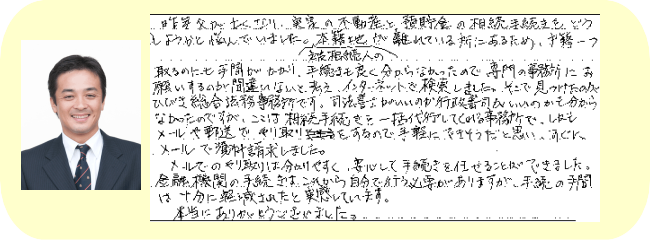 昨年父が亡くなり、実家の不動産と預貯金の相続手続きを、どう
しようかと悩んでいました。本籍地が離れている所にあるため、戸籍一つ
被相続人の
取るのにも手間がかかり、手続きも良く分からなかったので専門の事務所にお
願いするのが間違いないと考え、インターネットで検索しました。そこで見つけたのが
ひびき総合法務事務所です。司法書士がいいのか行政書司がいいのかも分から
なかったのですが、ここは相続手続きを一括代行してくれる事務所で、しかも
メールや郵送で、やり取りをするので、手軽にできそうだと思い、すぐに、
メールで資料請求しました。
メールでのやり取りは分かりやすく、安心して手続きを任せることができました。
金融機関の手続きは、これから自分で行う必要がありますが、手続の手間
は十分に軽減されたと実感しています。
本当にありがとうございました。